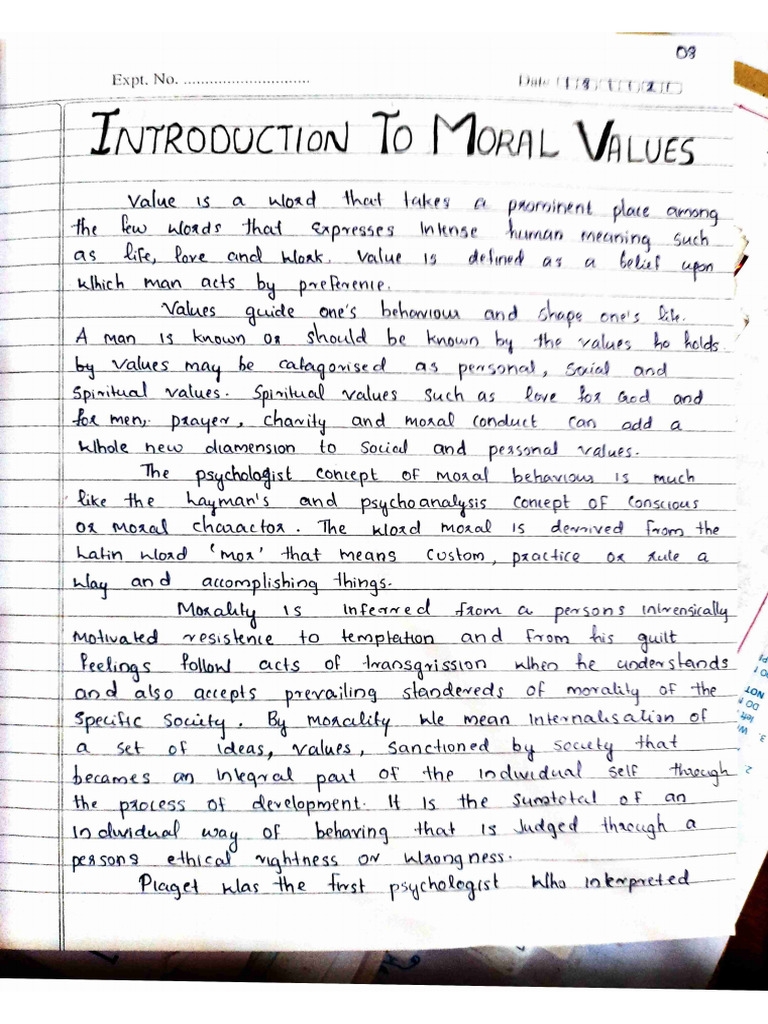 03
Expt. No. ............................
Date
INTRODUCTION TO MORAL VALUES
Value is a word that takes a prominent place among
the few words that expresses intense human meaning such
as life, love and work. Value is defined as a belief upon
which man acts by preference.
Values guide one's behaviour and shape one's life.
A man is known or should be known by the values he holds.
by values may be catagorised as personal, social and
spiritual values. Spiritual values such as love for God and
for men, prayer, charity and moral conduct can add a
whole new diamension to social and personal values.
The psychologist concept of moral behaviour is much
like the layman's and psychoanalysis concept of conscious
or moral charactor. The word moral is derrived from the
Latin word 'mor' that means custom, practice or rule a
way and accomplishing things.
Morality is inferred from a persons intrensically
motivated resistence to temptation and from his guilt
feelings follow acts of transgrission when he understands
and also accepts prevailing standereds of morality of the
specific society. By morality we mean internalisation of
a set of ideas, values, sanctioned by society that
becames an integral part of the individual self through
the process of development. It is the sumtotal of an
individual way of behaving that is judged through a
persons ethical rightness or wrongness.
Piaget was the first psychologist who interpreted